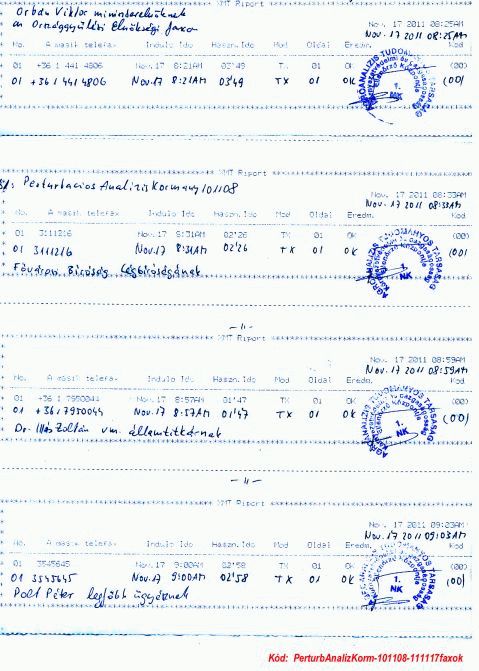 Orbán Viktor miniszterelnöknek
az Országgyűlési Elnökségi faxon
Nov. 17 2011 08:25AM
Nov. 17 2011 08:25AM
XMT Riport
No. A másik telefax Induló Idő Haszn.Idő Mód Oldal Eredm. Kód
01 +36 1 441 4806 Nov.17 8:21AM 03'49 TX 01 OK (00)
01 +36 1 441 4806 Nov.17 8:21AM 03'49 TX 01 OK (00)
AGROANALÍZIS TUDOMÁNYOS TÁRSASÁG
1.
NK
XMT Riport
Perturbációs Analízis Kormány 101108
Nov. 17 2011 08:33AM
Nov. 17 2011 08:33AM
No. A másik telefax Induló Idő Haszn.Idő Mód Oldal Eredm. Kód
01 3111216 Nov.17 8:31AM 02'26 TX 01 OK (00)
01 3111216 Nov.17 8:31AM 02'26 TX 01 OK (00)
AGROANALÍZIS TUDOMÁNYOS TÁRSASÁG
1.
NK
Fővárosi Bíróság
– 11 –
XMT Riport
Nov. 17 2011 08:59AM
Nov. 17 2011 08:59AM
No. A másik telefax Induló Idő Haszn.Idő Mód Oldal Eredm. Kód
01 +36 1 7950044 Nov.17 8:57AM 01'47 TX 01 OK (00)
01 +36 1 7950044 Nov.17 8:57AM 01'47 TX 01 OK (00)
AGROANALÍZIS TUDOMÁNYOS TÁRSASÁG
1.
NK
Dr. Illés Zoltán vm. államtitkárnak
– 11 –
XMT Riport
Nov. 17 2011 09:03AM
Nov. 17 2011 09:03AM
No. A másik telefax Induló Idő Haszn.Idő Mód Oldal Eredm. Kód
01 3545645 Nov.17 9:00AM 02'58 TX 01 OK (00)
01 3545645 Nov.17 9:00AM 02'58 TX 01 OK (00)
1.
NK
Polt Péter legfőbb ügyésznek
Kód: PerturbAnalizKorm-101108-111117faxok